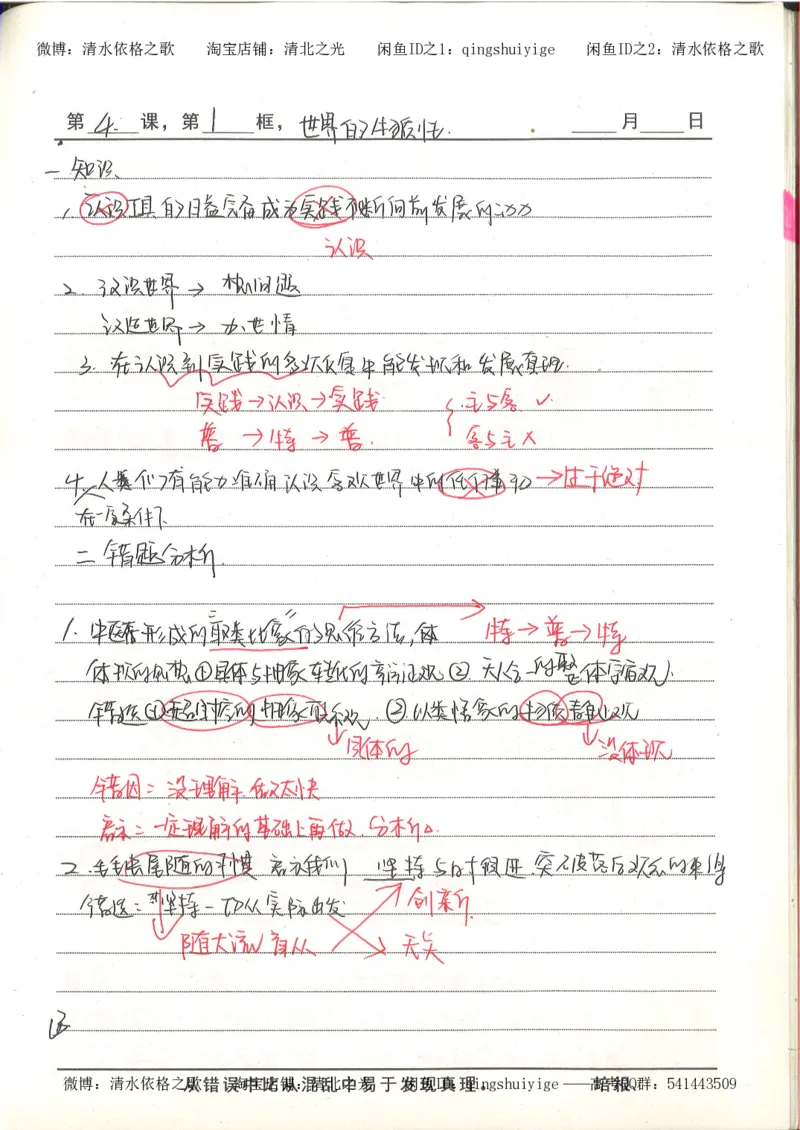 微博：清水依格之歌 淘宝店铺：清北之光 闲鱼ID之1：qingshuiyige 闲鱼ID之2：清水依格之歌
第 4 课，第 1 框，世界的物质性. 月 日
一 知识、
1、认识工具的日益完备成为实践不断向前发展的动力
认识
2. 认识世界 → 相问题
→ 办世情
3. 在认识到实践的多次反复中能发现和发展真理.
实践→认识→实践
主与客 ✓
普 → 特 → 普.
客与主 ✗
4. 人类们有能力准确认识客观世界中的任何事物 →过于绝对
在一定条件下
二 错题分析.
1. 中医形成的"取类比象"的思维方法，体
特→普→特
体现的思想①具体与抽象转化的辩证观 ② 天人合一的整体宇宙观.
错选①无客体的抽象联系观 ②以类悟象的物质静止观
具体的
没体现
错因：没理解 做太快
启示：一定理解的基础上再做.分析.
2. 毛毛虫尾随的习惯 启示我们 坚持与时俱进.突破落后观念的束缚
错选：坚持一切从实际出发
创新
随大流 盲从
无关
从错误中比从混乱中易于发现真理. ——培根
微博：清水依格之歌 淘宝店铺：清北之光 闲鱼ID：qingshuiyige QQ群：541443509